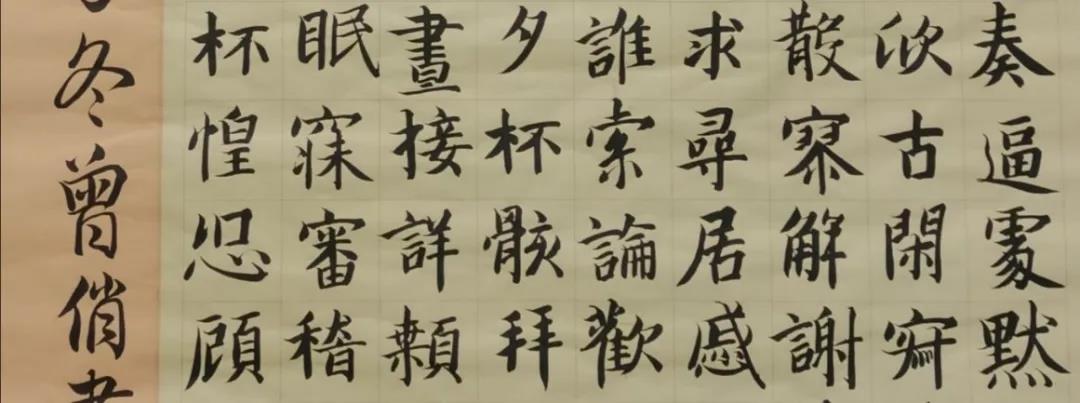 奏逼處默
欣古閑
散解謝
求尋居慼
誰索論歡
夕杯骸拜
晝接詳顙
眠寐審稽
杯惶恐顧
冬曾俏書